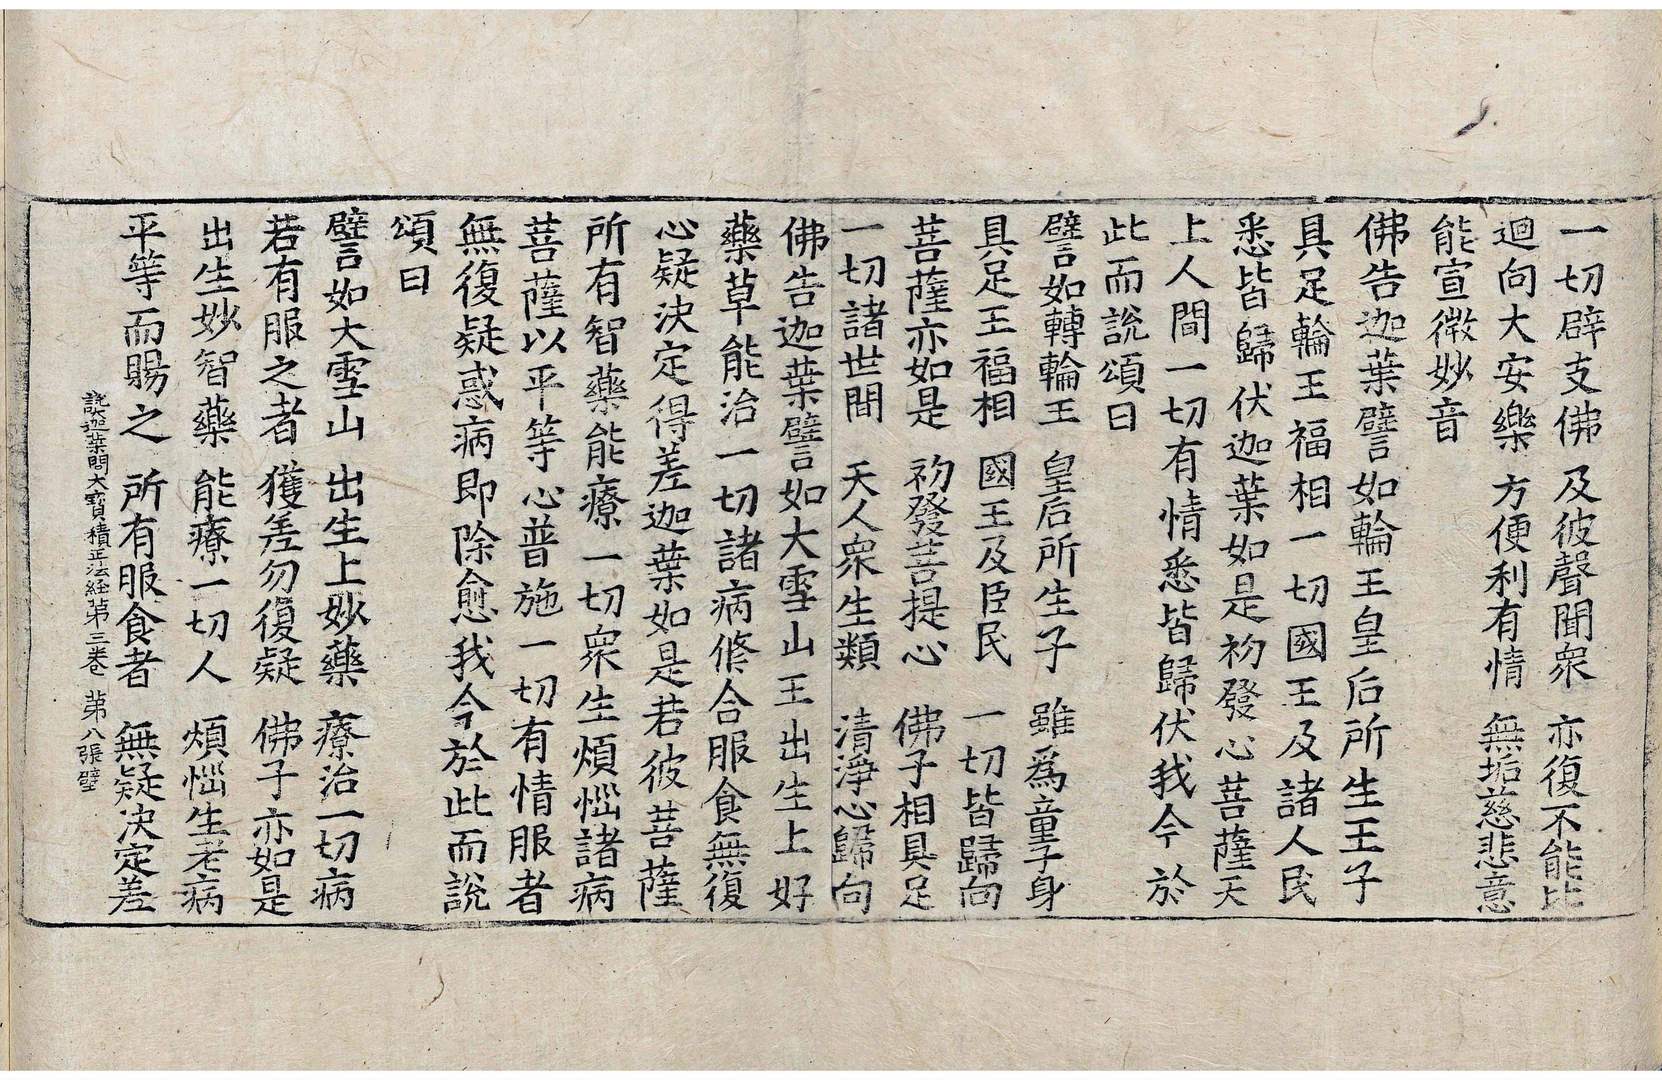 一切辟支佛 及彼聲聞衆 亦復不能比
迴向大安樂 方便利有情 無垢慈悲意
能宣微妙音
佛告迦葉譬如輪王皇后所生王子
具足輪王福相一切國王及諸人民
悉皆歸伏迦葉如是初發心菩薩天
上人間一切有情悉皆歸伏我今於
此而說頌曰
譬如轉輪王 皇后所生子 雖爲童子身
具足王福相 國王及臣民 一切皆歸向
菩薩亦如是 初發菩提心 佛子相具足
一切諸世間 天人衆生類 清淨心歸向
佛告迦葉譬如大雪山王出生上好
藥草能治一切諸病修合服食無復
心疑決定得差迦葉如是若彼菩薩
所有智藥能療一切衆生煩惱諸病
菩薩以平等心普施一切有情服者
無復疑惑病即除愈我今於此而說
頌曰
譬如大雪山 出生上妙藥 療治一切病
若有服之者 獲差勿復疑 佛子亦如是
出生妙智藥 能療一切人 煩惱生老病
平等而賜之 所有服食者 無疑決定差
說迦葉問大寶積正法経第三巻 第八張 壁